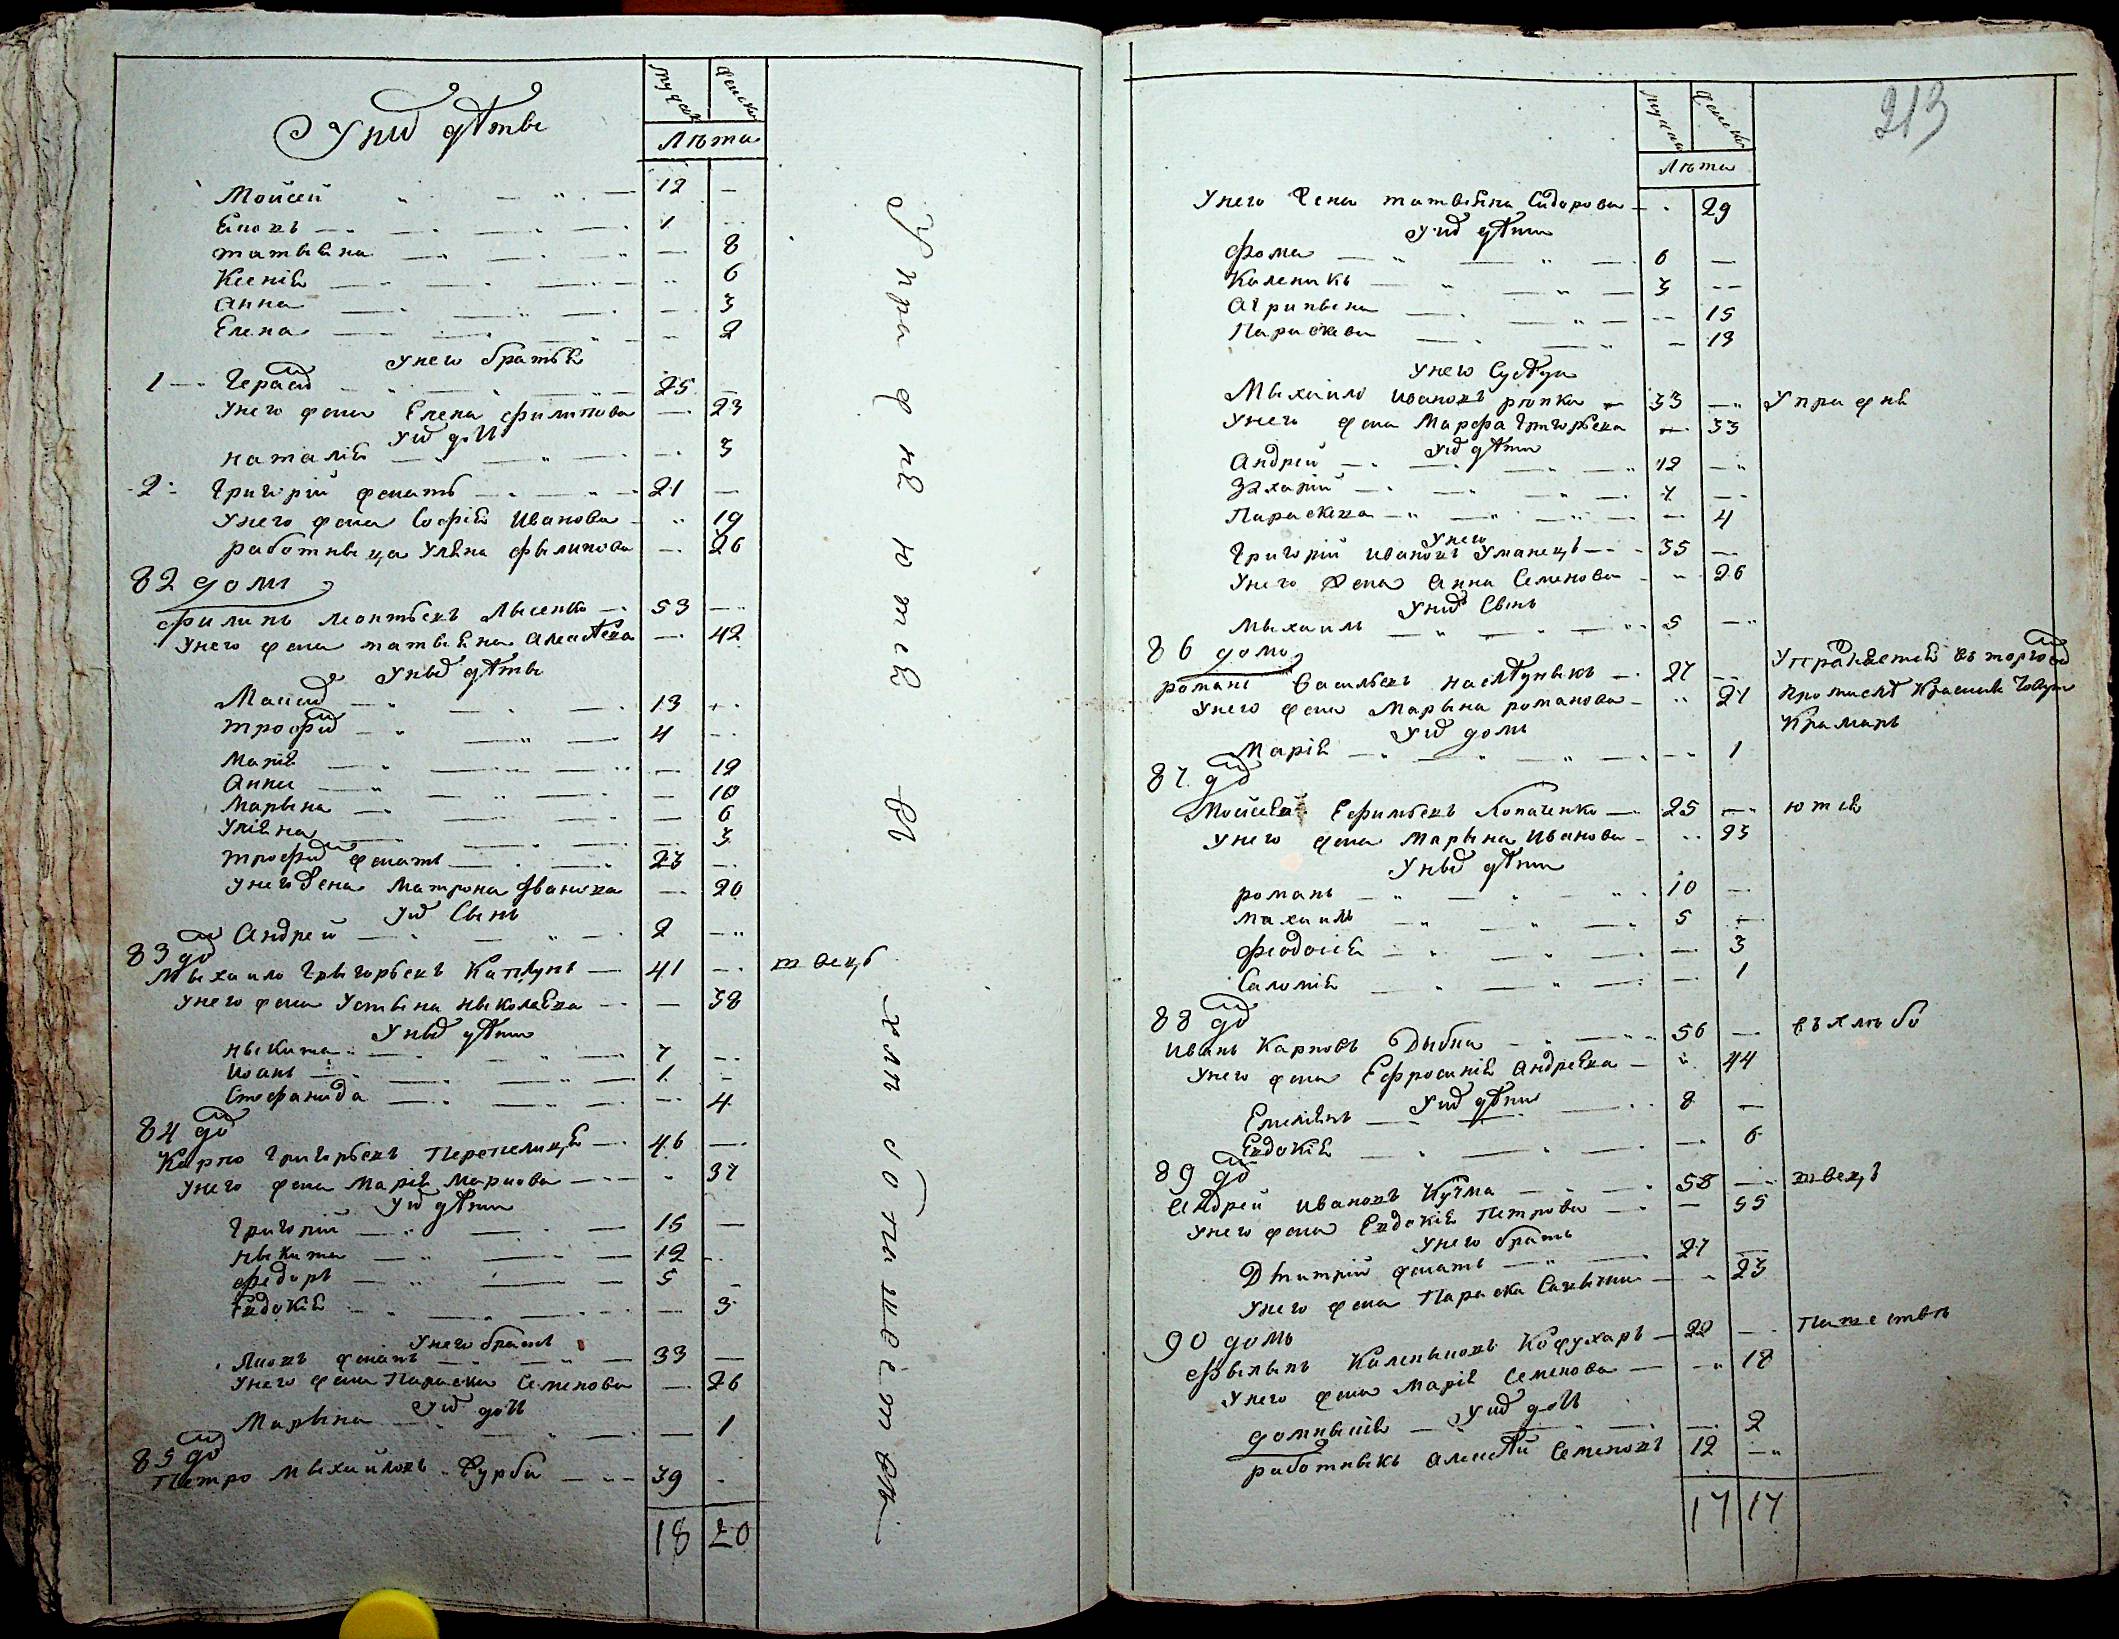 мужск женск
Лѣта
У них дѣты
Мойсей 12 —
1 —
татьяна — 8
Ксенія — 6
Анна — 3
Елена — 2
у него братья
1 — Герасим 25 —
у него жена Елена филипова — 23
у них доч
наталія — 3
2 Григорій женатъ 21 —
у него жена Софія Иванова — 19
работныца Уляна филипова — 26
82 домъ
филипъ Леонтьевъ Лысенко 53 —
у него жена татьяна Алексѣева — 42
у ных дѣты
13
трофим 4 —
Марія — 12
Анна — 10
Марына — 6
Уліяна — 3
трофим женатъ 23 —
у него жена Матрона Иванова — 20
у них сынъ
Андрей 2 —
83 дом
Мыхайло Грыгорьевъ Каплунъ 41 — швецъ
у него жена Устына Ныколаева — 38
у ных дѣти
Ныкита 7 —
Иванъ 1 —
Стефанида — 4
84 дом
Карпо Григорьевъ Перепелиця 46 —
у него жена Марія Маркова — 37
у них дѣти
Григорій 15 —
Ныкита 12
федоръ 5 —
Евдокія — 3
у него братъ
женатъ 33 —
у него жена Параска Семенова — 26
у них доч
Марына — 1
85 дом
Петро Мыхайловъ Журба 39
18 20
Упражняются въ хлѣбопашествѣ
213
мужск женск
Лѣта
у него жена татьяна Сидорова — 29
у них дѣти
фома 6 —
Каленикъ 3 —
Агрипына — 15
Параскева — 13
у него Сусѣди
Мыхайло Ивановъ рѣпка 33 — Упражня
у него жена Марфа Григорьева — 33
у них дѣти
Андрей 12 —
Захарій 7 —
Параскева — 4
у него
Григорій Ивановъ Уманецъ 35 —
у него жена Анна Семенова — 26
у них сынъ
Мыхаилъ 5 —
86 домъ
романъ Васильевъ наслѣдныкъ 27 — Упражняется въ торговом
у него жена Марына романова — 21 промыслѣ
у них доч Крамаръ
Марія — 1
87 дом
Мойсей Ефимьевъ Лопатенко 25 — ются
у него жена Марына Иванова — 23
у ных дѣти
романъ 10 —
Михаилъ 5 —
феодосія — 3
Саломія — 1
88 дом
Иванъ Карповъ Дыбка 56 — въ хлѣбо
у него жена Ефросинія Андреева — 44
у них дѣти
Емеліянъ 8 —
Евдокія — 6
89 дом
Андрей Ивановъ Кучма 58 — швецъ
у него жена Евдокія Петрова — 55
у него братъ
Дмитрій женатъ 27 —
у него жена Параска — 23
90 домъ
фылыпъ Каленыковъ Кожухаръ 22 — пашествѣ
у него жена Марія Семенова — 18
у них доч
домныкія — 2
работныкъ Алексѣй Семеновъ 12 —
17 17